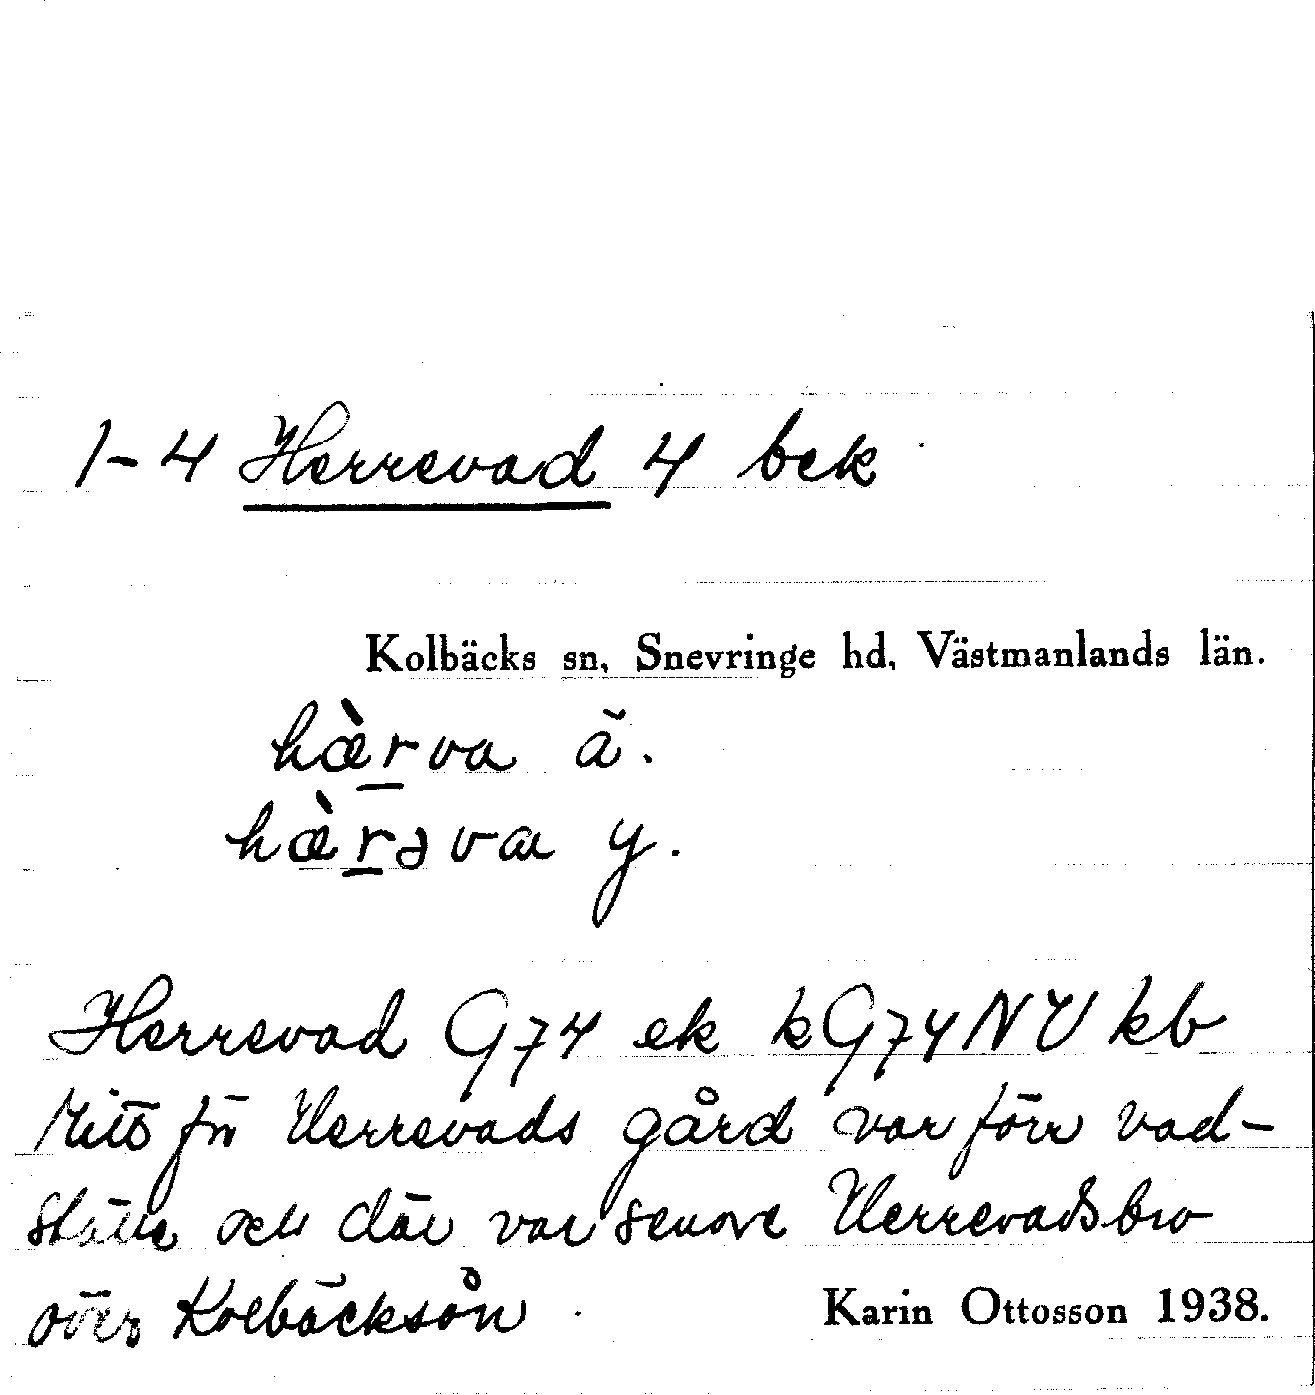 1-4 Herrevad 4 bek
Kolbäcks sn, Snevringe hd, Västmanlands län.
hæ̀r̲va ä.
hæ̀r̲əva y.
Herrevad G74 ek kG74NV kb
Mitt för Herrevads gård var förr vad-
ställe och där var senare Herrevadsbro
över Kolbäcksån.
Karin Ottosson 1938.